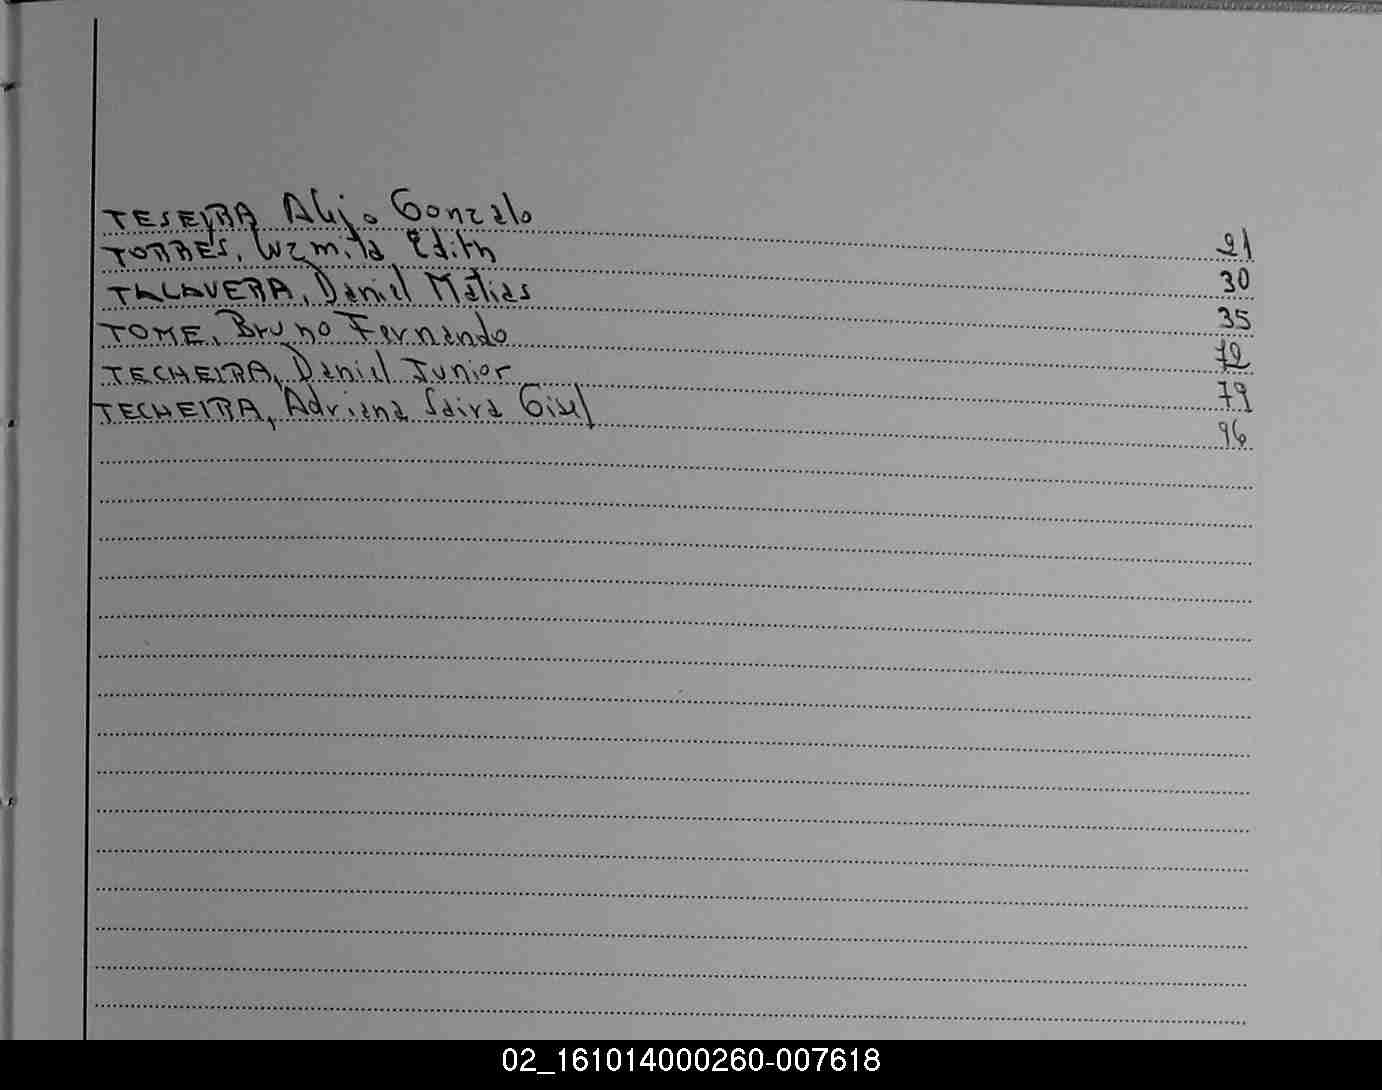 TESEIRA Alejo Gonzalo 21
TORRES, Luzmila Edith 30
TALAVERA, Daniel Matias 35
TOME, Bruno Fernando 72
TECHEIRA, Daniel Junior 79
TECHEIRA, Adriana Saira Gisel 96
02_161014000260-007618